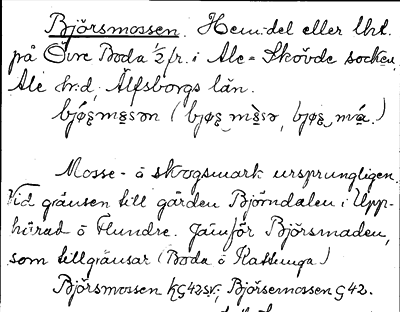 Björsmossen. Hem:del eller lht.
på Övre Boda ½ fr. i Ale-Skövde socken,
Ale hr:d, Älfsborgs län.
Mosse- o skogsmark ursprungligen.
Vid gränsen till gården Björndalen i Upp-
härad o Flundre. Jämför Björsmaden,
som tillgränsar (Boda o Rattunga)
Björsmossen KG42SV; Björsemossen G42.